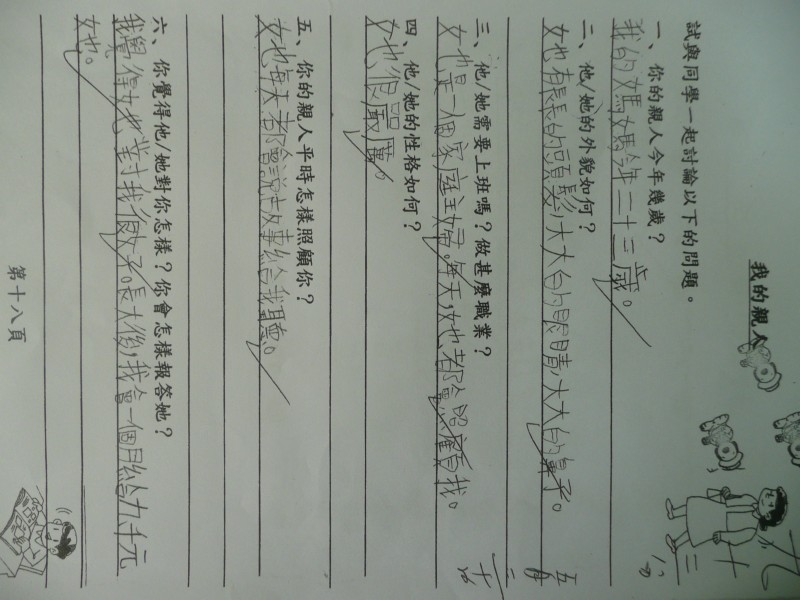 我的親人
試與同學一起討論以下的問題。
一、你的親人今年幾歲？
我的媽媽今年三十三歲。
二、他/她的外貌如何？
她有長長的頭髮，大大的眼睛，大大的鼻子。
三、他/她需要上班嗎？做甚麼職業？
她是一個家庭主婦。每天，她都會照顧我。
四、他/她的性格如何？
她很嚴厲。
五、你的親人平時怎樣照顧你？
她每天都會說故事給我聽。
六、你覺得他/她對你怎樣？你會怎樣報答她？
我覺得她對我很好。長大後，我會一個月給九千元
她。
第十八頁